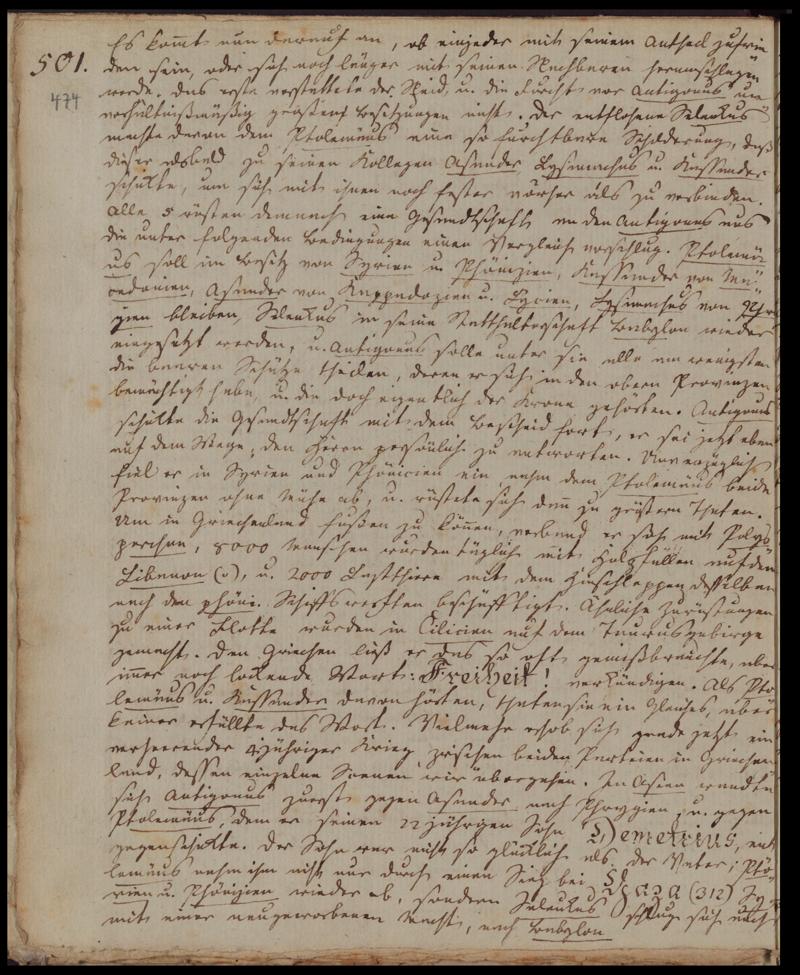 Es kommt nun darauf an, ob ein jeder mit seinem Antheil zufrie
501.
474
den sein, oder sich noch länger mit seinen Nachbaren herumschlagen
werde. Das erste verstattete der Neid, u. die Furcht vor Antigonus un
verhältnißmäßig großen Besitzungen nicht. Der entflohene Seleukus
machte davon dem Ptolemäus eine so furchtbare Schilderung, daß
dieser alsbald zu seinen Kollegen Asander, Lysimachus u. Kassander
schickte, um sich mit ihnen noch fester vorher als zu verbinden.
Alle 5 rüsten demnach eine Gesandtschaft an den Antigonus aus
die unter folgenden Bedingungen einen Vergleich vorschlug. Ptolemä
us soll im Besitz von Syrien u. Phönizien, Kassander von Ma
cedonien, Asander von Kappadozien u. Lycien, Lysimachus von
zien bleiben, Seleukus in seine Statthalterschaft Babylon wieder
eingesetzt werden, u. Antigonus solle unter sie alle am wenigsten
die baaren Schätze theilen, deren er sich in den obern Provinzen
bemächtigt habe, u. die doch eigentlich der Krone gehörten. Antigonus
schickte die Gesandtschaft mit dem Bescheid fort, er sei jetzt eben
auf dem Wege, den Herrn persönlich zu antworten. Unverzüglich
fiel er in Syrien und Phönicien ein, nahm dem Ptolemäus beide
Provinzen ohne Mühe ab, u. rüstete sich dann zu größern Thaten.
Um in Griechenland fußen zu können, verband er sich mit Polys
perchon, 8000 Menschen wurden täglich mit Holzfällen auf dem
Libanon (), u. 2000 Lastthiere mit dem Hinschleppen desselben
nach den phöni. Schiffswerften beschäfftigt. Ähnliche Zurüstungen
zu einer Flotte wurden in Cilicien auf dem Taurusgebirge
gemacht. Den Griechen ließ er das so oft gemißbrauchte, aber
immer noch lockende Wort: Freiheit! verkündigen. Als Pto
lemäus u. Kassander davon hörten, thaten sie ein Gleiches, aber
keiner erfüllte das Wort. Vielmehr erhob sich grade jetzt ein
verheerender 4jähriger Krieg zwischen beiden Parteien in Griechen
land, dessen einzelne Scenen wir übergehen. In Asien wandte
sich Antigonus zuerst gegen Asander nach Phrygien, u. gegen
Ptolemäus, dem er seinen 22 jährigen Sohn Demetrius, ent
gegenschickte. Der Sohn war nicht so glücklich als der Vater; Pto
lemäus nahm ihm nicht nur durch einen Sieg bei Gaza (312) Sy
rien u. Phönizien wieder ab, sondern Seleukus schlug sich auch
mit einer neugeworbenen Macht, nach Babylon